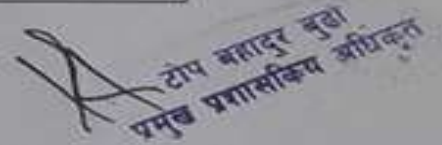 टोप बहादुर बुढा
प्रमुख प्रशासकिय अधिकृत